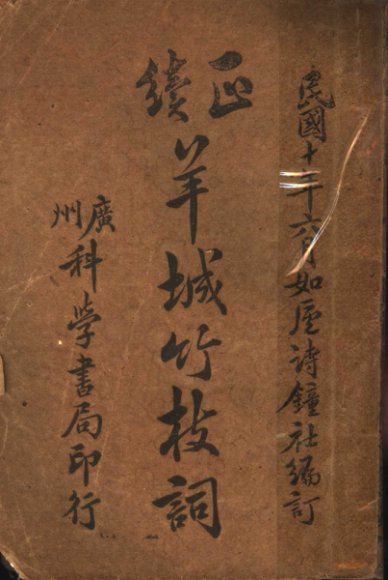 民國十年六月如廬詩鐘社編訂
正續羊城竹枝詞
廣州科學書局印行